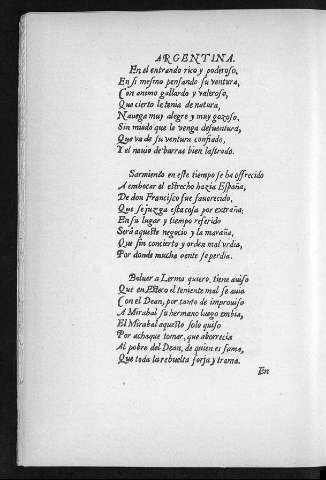 ARGENTINA.
En el entrando rico y poderoso,
En si mesmo pensando su ventura,
Con animo gallardo y valeroso,
Que cierto le tenia de natura,
Nauega muy alegre y muy gozoso,
Sin miedo que le venga desuentura,
Que va de su ventura confiado,
Y el nauio de barras bien lastrado.
Sarmiento en este tiempo se ha offrecido
A embocar el estrecho hazia España,
De don Francisco fue fauorecido,
Que se juzga esta cosa por extraña:
En su lugar y tiempo referido
Será aqueste negocio y la maraña,
Que sin concierto y orden mal vrdia,
Por donde mucha gente se perdia.
Boluer a Lerma quiero, tiene auiso
Que en Esteco el teniente mal se auia
Con el Dean, por tanto de improuiso
A Mirabal su hermano luego embia,
El Mirabal aquesto solo quiso
Por achaque tomar, que aborrecia
Al pobre del Dean, de quien es fama,
Que toda la rebuelta forja y trama.
En